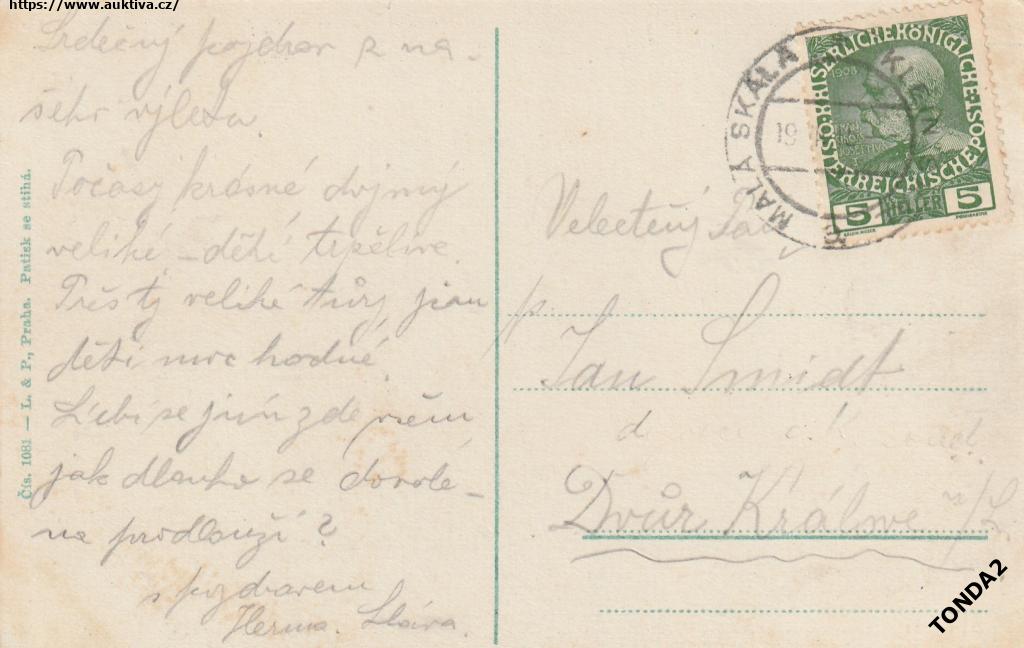 https://www.auktiva.cz/
Srdečný pozdrav z na-
šeho výletu.
Počasí krásné dojmy
veliké - děti trpělivé.
Příští veliké túry, jsou
děti moc hodné.
Líbí se jim zde všem
jak dlouho se dovole-
na prodlouží?
s pozdravem
Herma. Sláva.
Čís. 1081 — L. & P., Praha. Patisk se stíhá.
MALÁ SKÁLA
KLEIN
19
KAISERLICHE KÖNIGLICHE
ÖSTERREICHISCHE POST
1908
5 HELLER 5
Velectěný Pan
p.
Jan Smidt
Dvůr Králové n/L
TONDA2